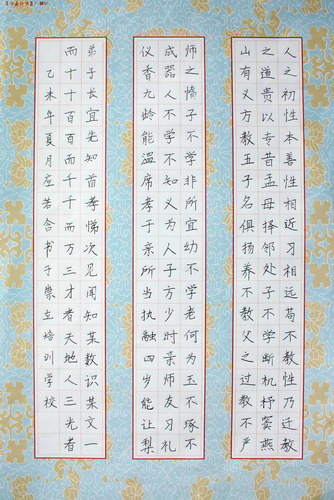 人之初性本善性相近习相远苟不教性乃迁教
之道贵以专昔孟母择邻处子不学断机杼窦燕
山有义方教五子名俱扬养不教父之过教不严
师之惰子不学非所宜幼不学老何为玉不琢不
成器人不学不知义为人子方少时亲师友习礼
仪香九龄能温席孝于亲所当执融四岁能让梨
弟子长宜先知首孝悌次见闻知某数识某文一
而十十百百而千千而万三才者天地人三光者
乙未年夏月若含书于崇立培训学校